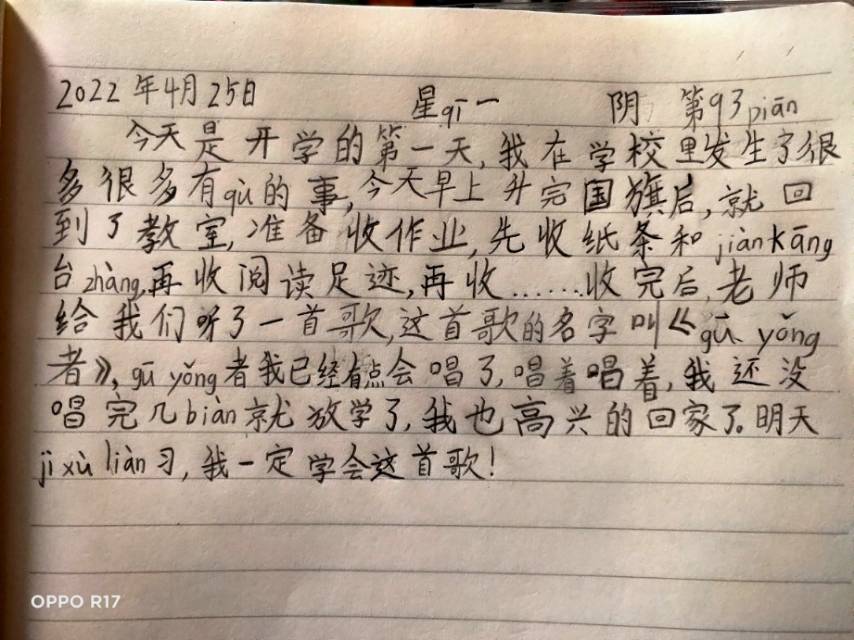 2022年4月25日 星qī一 阴 第93piān
今天是开学的第一天,我在学校里发生了很
多很多有qù的事,今天早上升完国旗后,就回
到了教室,准备收作业,先收纸条和jiànkāng
台zhàng,再收阅读足迹,再收……收完后,老师
给我们听了一首歌,这首歌的名字叫《gū yǒng
者》,gū yǒng者我已经有点会唱了,唱着唱着,我还没
唱完几biàn就放学了,我也高兴的回家了。明天
jì xù liàn习,我一定学会这首歌!
OPPO R17